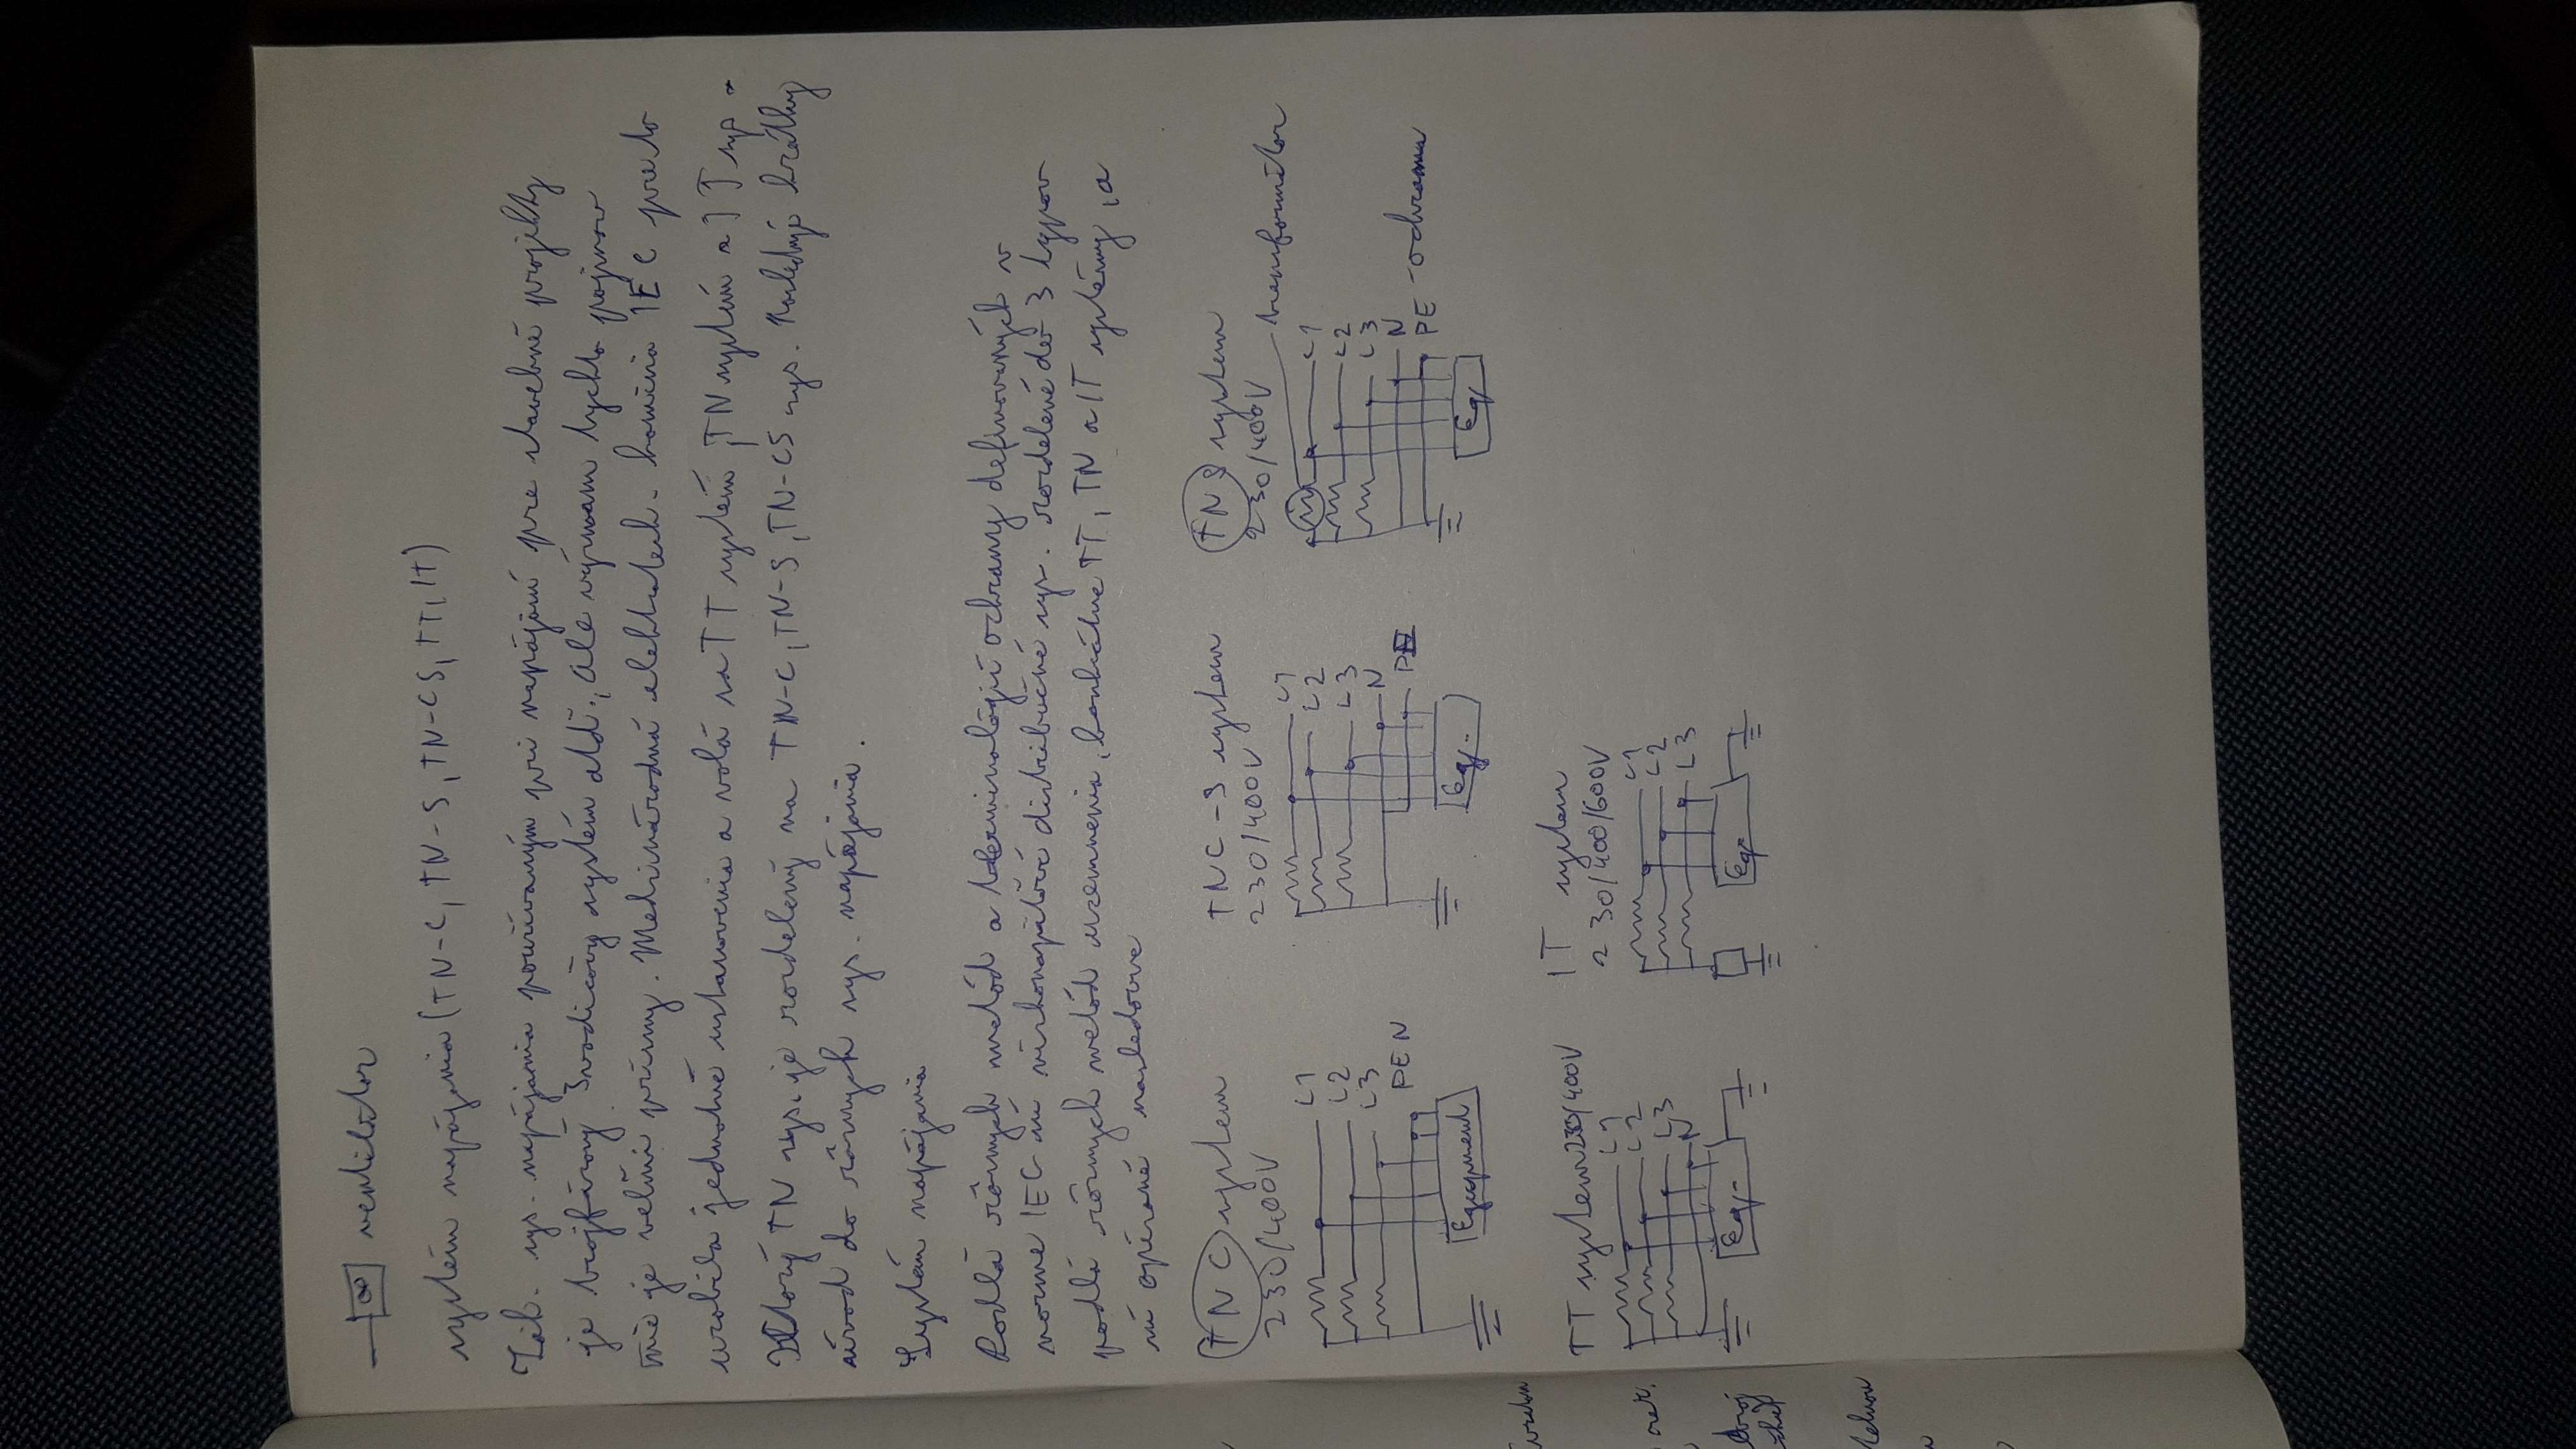 ventilátor
systém napájania (TN-C, TN-S, TN-CS, TT, IT)
Zák. sys. napájania používaným pri napájaní pre stavebné projekty
je trojfázový 3vodičový systém atď., ale význam týchto pojmov
nie je veľmi prísny. Medzinárodná elektrotech. komisia IEC preto
urobila jednotné ustanovenia a volá sa TT systém, TN systém a IT sys.
Ktorý TN sys. je rozdelený na TN-C, TN-S, TN-CS sys. Nasleduje krátky
úvod do rôznych sys. napájania.
Systém napájania
Podľa rôznych metód a terminológií ochrany definovaných v
norme IEC sú nízkonapäťové distribučné sys. rozdelené do 3 typov
podľa rôznych metód uzemnenia, konkrétne TT, TN a IT systémy, a
sú opísané nasledovne
TNC system
230/400V
L1
L2
L3
PEN
Equipment
TNC-S system
230/400V
L1
L2
L3
N
Eq.
TNS system
230/400V
transformátor
L1
L2
L3
N
PE - ochrana
Eq.
TT system 230/400V
L1
L2
L3
N
Eq.
IT system
230/400/600V
L1
L2
L3
Eq.